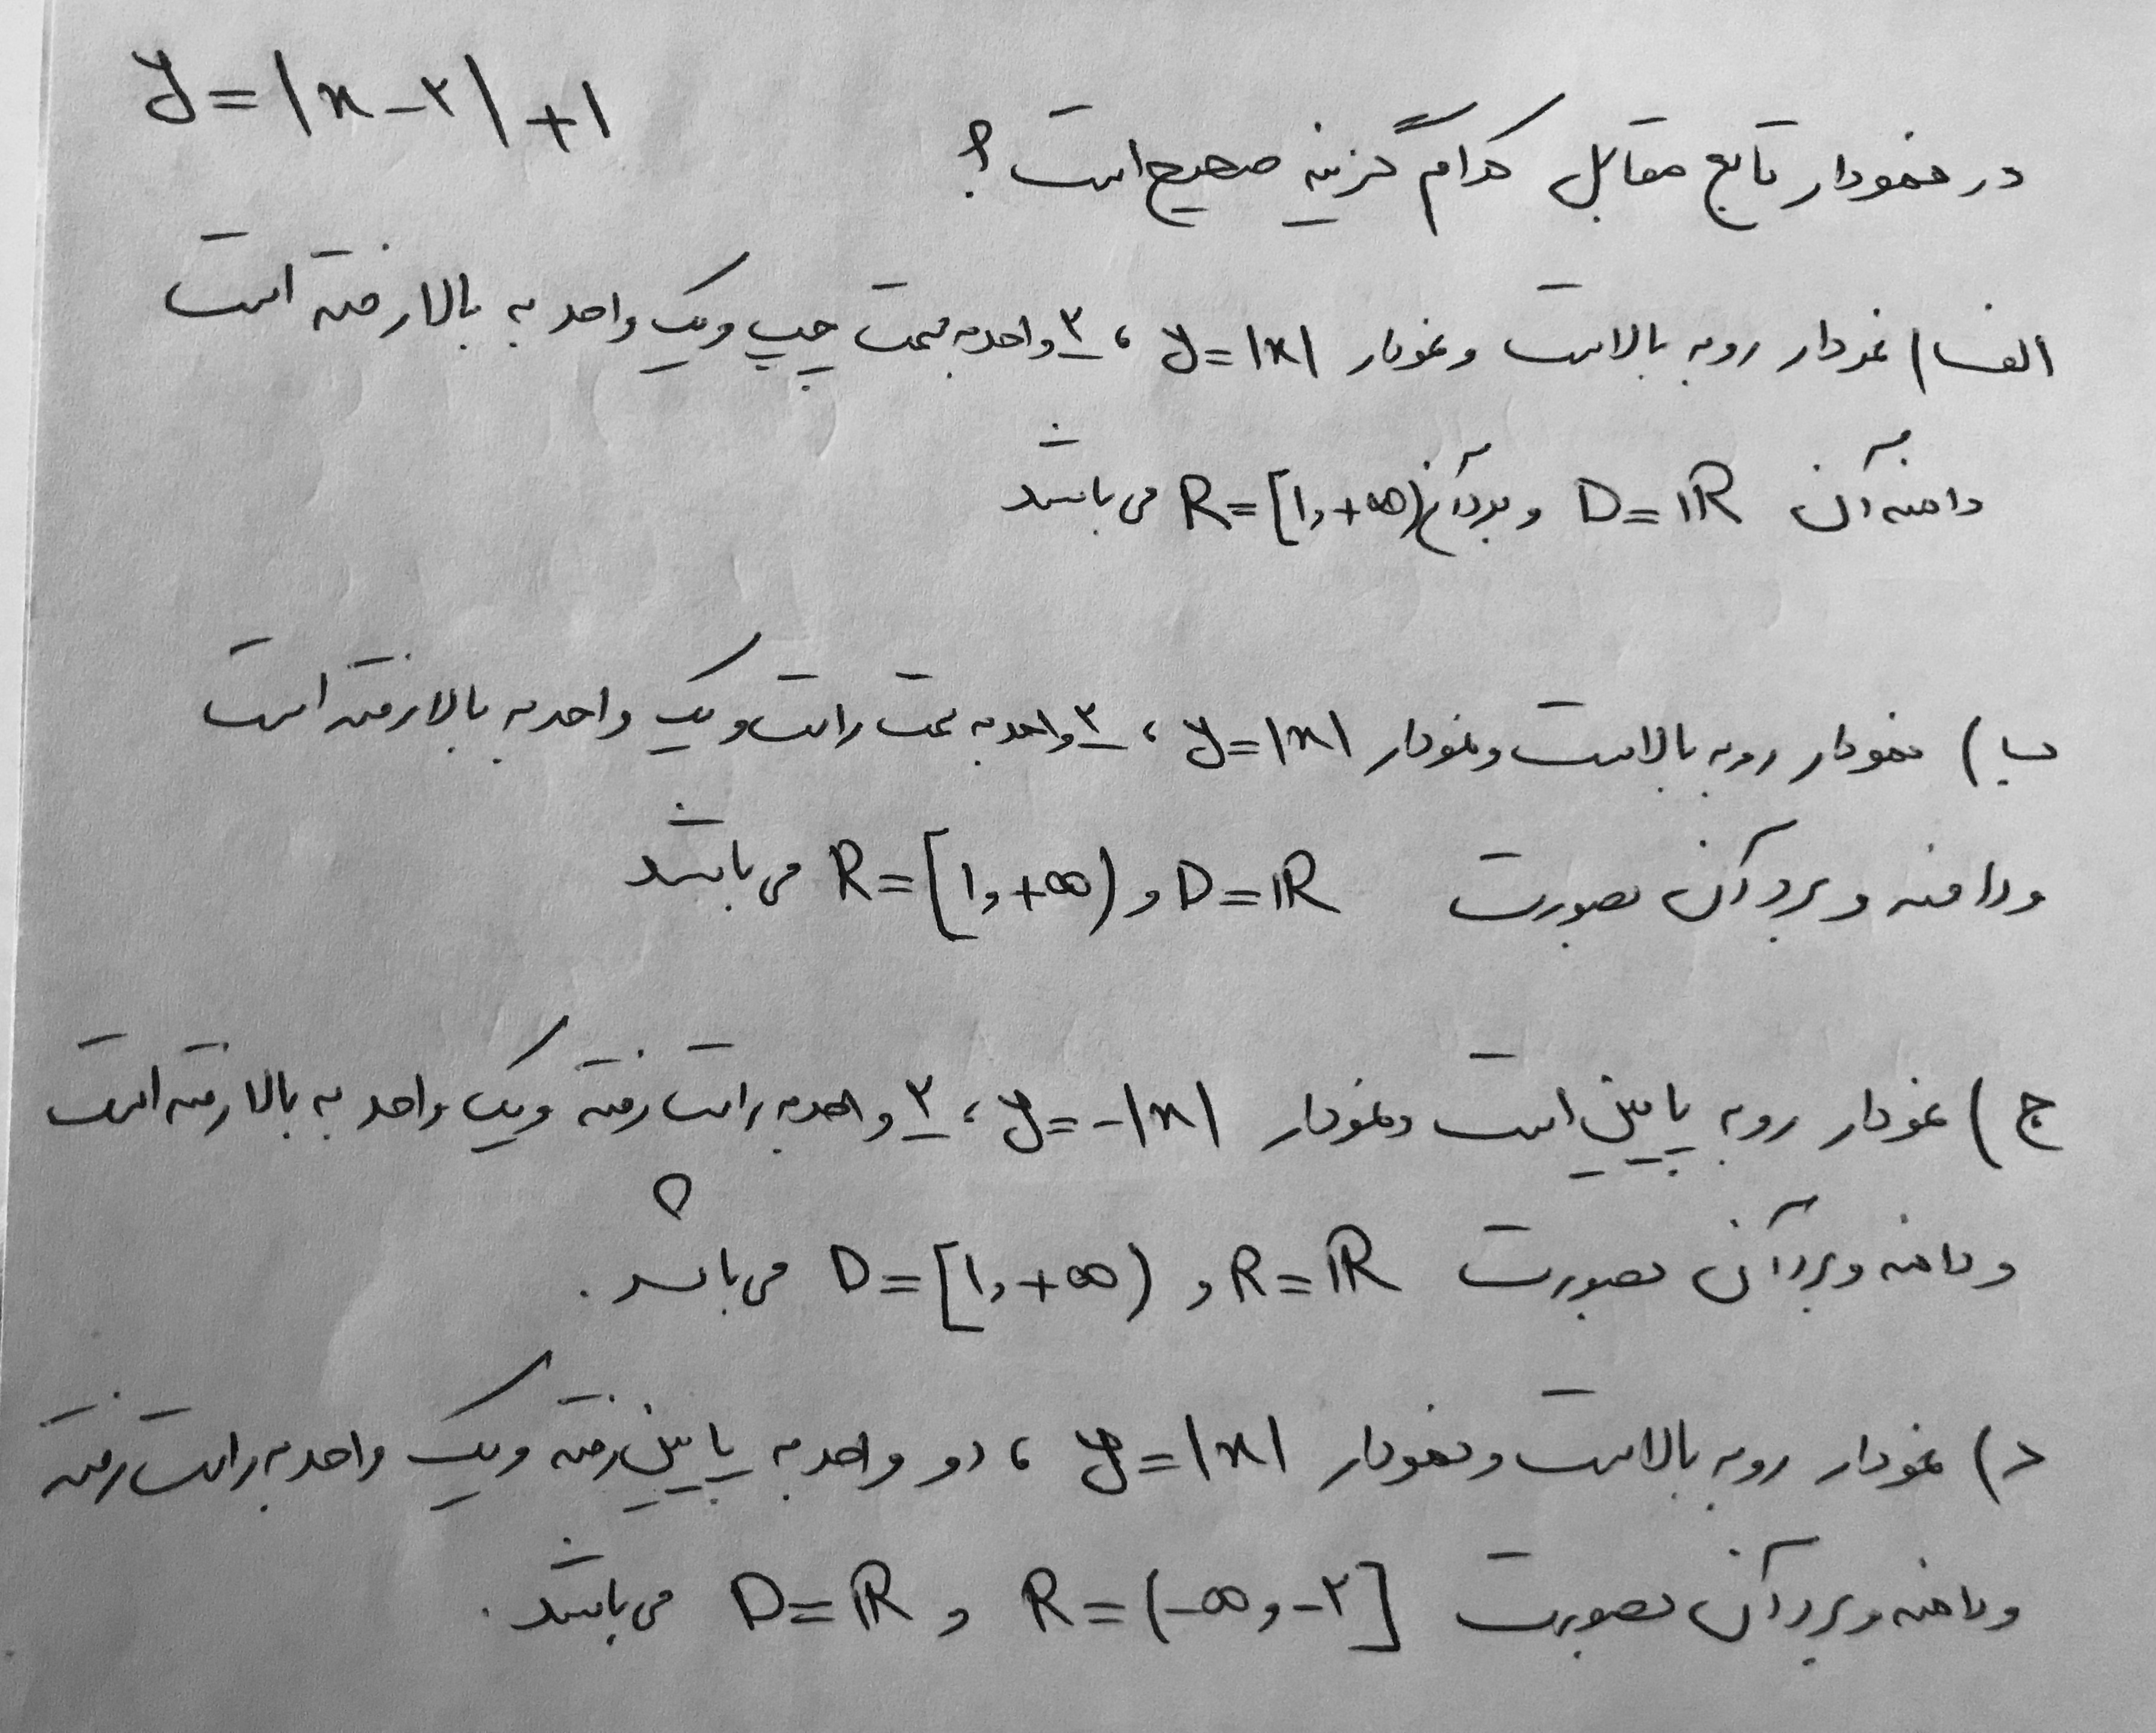 y = |x - ۲| + ۱
در نمودار تابع مقابل کدام گزینه صحیح است؟
الف) نمودار رو به بالاست و نمودار y = |x| ، ۲ واحد به سمت چپ و یک واحد به بالا رفته است
دامنه آن D = ℝ و برد آن R = [۱, +∞) می باشد
ب) نمودار رو به بالاست و نمودار y = |x| ، ۲ واحد به سمت راست و یک واحد به بالا رفته است
و دامنه و برد آن بصورت D = ℝ و R = [۱, +∞) می باشد
ج) نمودار رو به پایین است و نمودار y = -|x| ، ۲ واحد به راست رفته و یک واحد به بالا رفته است
و دامنه و برد آن بصورت R = ℝ و D = [۱, +∞) می باشد.
د) نمودار رو به بالاست و نمودار y = |x| ، دو واحد به پایین رفته و یک واحد به راست رفته
و دامنه و برد آن بصورت R = (-∞, -۲] و D = ℝ می باشد.